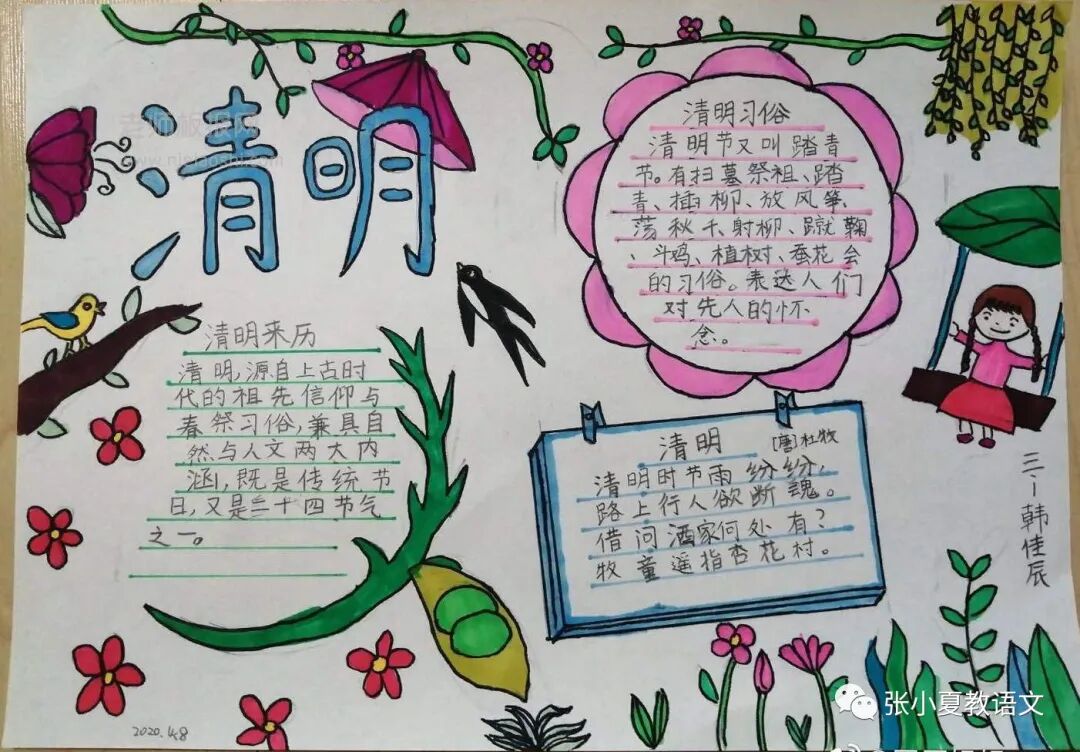 清明
老师板报网
清明习俗
清明节又叫踏青
节。有扫墓祭祖、踏
青、插柳、放风筝、
荡秋千、射柳、蹴鞠
、斗鸡、植树、蚕花会
的习俗。表达人们
对先人的怀
念。
清明来历
清明,源自上古时
代的祖先信仰与
春祭习俗,兼具自
然与人文两大内
涵,既是传统节
日,又是二十四节气
之一。
清明 [唐]杜牧
清明时节雨纷纷,
路上行人欲断魂。
借问酒家何处有?
牧童遥指杏花村。
三一韩佳辰
2020.4.8
张小夏教语文